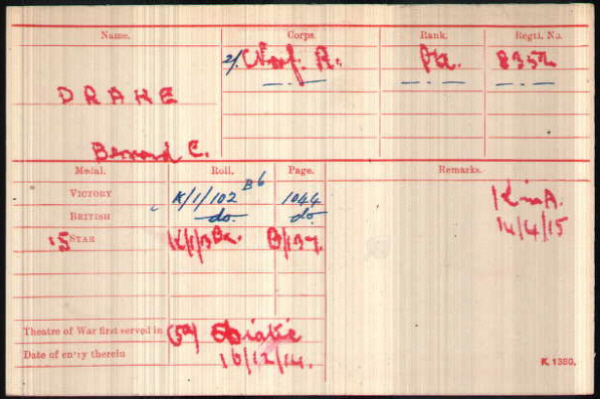 Name. Corps. Rank. Regtl. No.
2/. Norf. R. Pte. 8352
DRAKE
Bernard C.
Medal. Roll. Page. Remarks.
VICTORY K/1/102 B6 1044 K in A.
BRITISH do. do. 14/4/15
15 STAR K/1/3
Theatre of War first served in Asiatic
Date of entry therein 16/12/14.
K 1380.